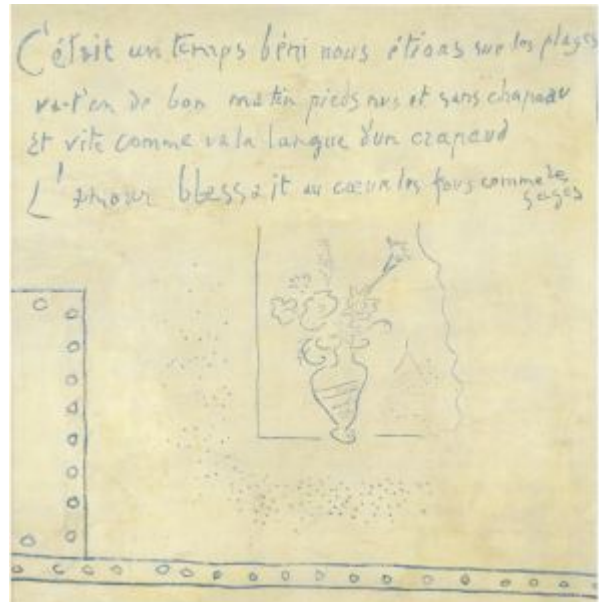 C'était un temps béni nous étions sur les plages
va-t'en de bon matin pieds nus et sans chapeau
Et vite comme va la langue d'un crapaud
L'amour blessait au cœur les fous comme les
sages